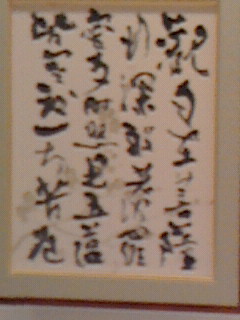 観自在菩薩
行深般若波羅
蜜多時照見五蘊
皆空度一切苦厄